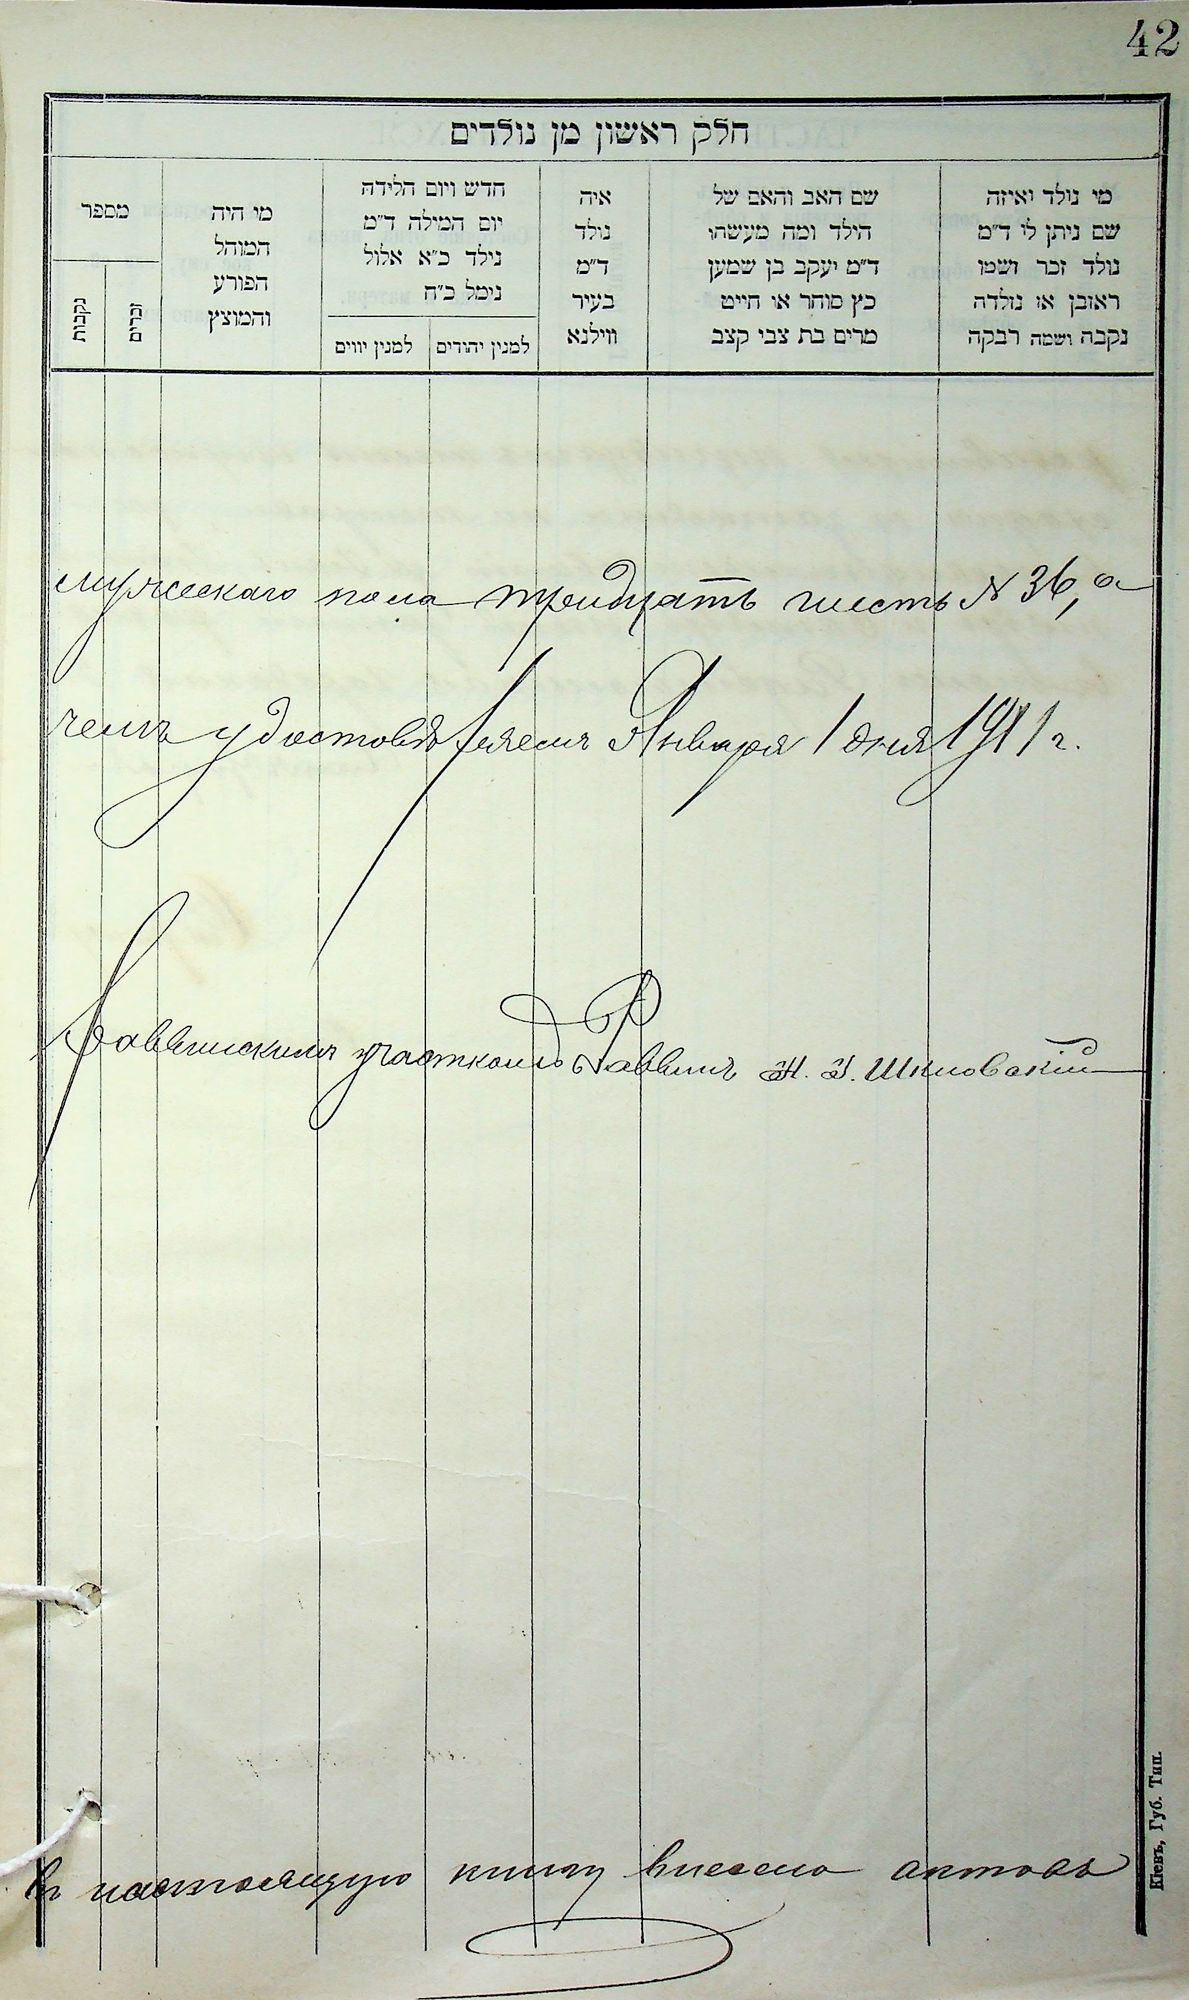 42
חלק ראשון מן נולדים
מי נולד ואיזה
שם ניתן לו ד״מ
נולד זכר ושמו
ראובן או נולדה
נקבה ושמה רבקה
שם האב והאם של
הילד ומה מעשהו
ד״מ יעקב בן שמעון
כץ סוחר או חייט
מרים בת צבי קצב
איה
נולד
ד״מ
בעיר
ווילנא
חדש ויום הלידה
יום המילה ד״מ
נילד כ״א אלול
נימל כ״ח
למנין יהודים
למנין יווים
מי היה
המוהל
הפורע
והמוצץ
מספר
זכרים
נקבות
мужескаго пола тридцать шесть № 36, въ
чемъ удостовѣряемъ Января 1 дня 1911 г.
Раввинскимъ участкомъ Раввинъ Н. З. Шкловскій
Въ настоящую книгу внесено актовъ
Кіевъ, Губ. Тип.